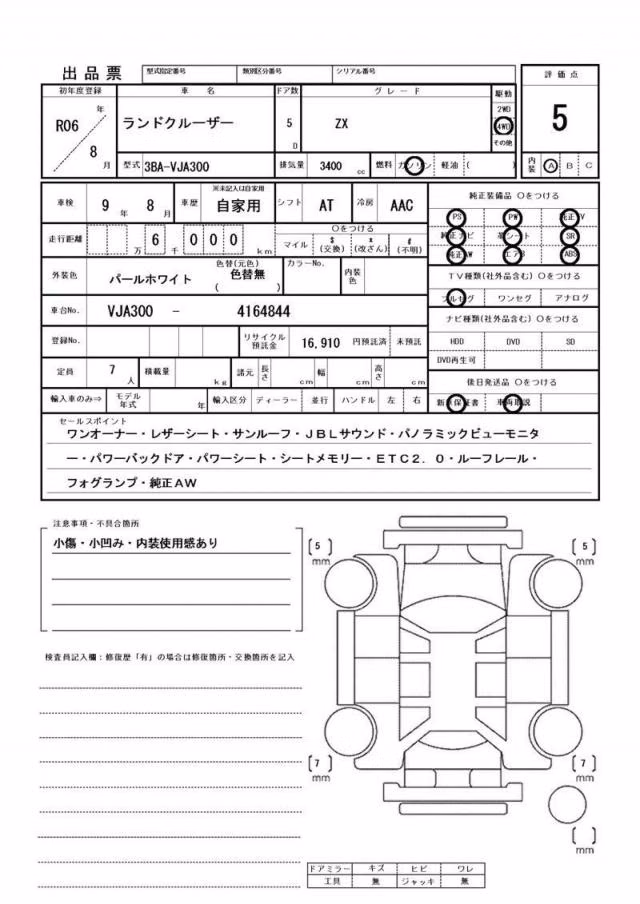 出品票 型式指定番号 類別区分番号 シリアル番号 評価点
初年度登録 車名 ドア数 グレード 駆動
R06 年 8 月 ランドクルーザー 5 D ZX 2WD 4WD その他 5
型式 3BA-VJA300 排気量 3400 cc 燃料 ガソリン 軽油 ( ) 内装 A B C
車検 9 年 8 月 車歴 ※未記入は自家用 自家用 シフト AT 冷房 AAC 純正装備品 ○をつける
走行距離 万 6 千 0 0 0 km ○をつける マイル $ (交換) x (改ざん) # (不明)
PS PW 純正TV
純正ナビ 革シート SR
純正AW エアB ABS
外装色 パールホワイト 色替(元色) 色替無 ( ) カラーNo. 内装色
TV種類(社外品含む) ○をつける
フルセグ ワンセグ アナログ
車台No. VJA300 - 4164844
ナビ種類(社外品含む) ○をつける
登録No. リサイクル預託金 16,910 円預託済 未預託
HDD DVD SD
DVD再生可
定員 7 人 積載量 kg 諸元 長さ cm 幅 cm 高さ cm
後日発送品 ○をつける
輸入車のみ⇒ モデル年式 年 輸入区分 ディーラー 並行 ハンドル 左 右
新車保証書 車両取説
セールスポイント
ワンオーナー・レザーシート・サンルーフ・JBLサウンド・パノラミックビューモニタ
ー・パワーバックドア・パワーシート・シートメモリー・ETC2.0・ルーフレール・
フォグランプ・純正AW
注意事項・不具合箇所
小傷・小凹み・内装使用感あり
[5] mm [5] mm
検査員記入欄:修復歴「有」の場合は修復箇所・交換箇所を記入
[7] mm [7] mm
[ ] mm
ドアミラー キズ ヒビ ワレ
工具 無 ジャッキ 無